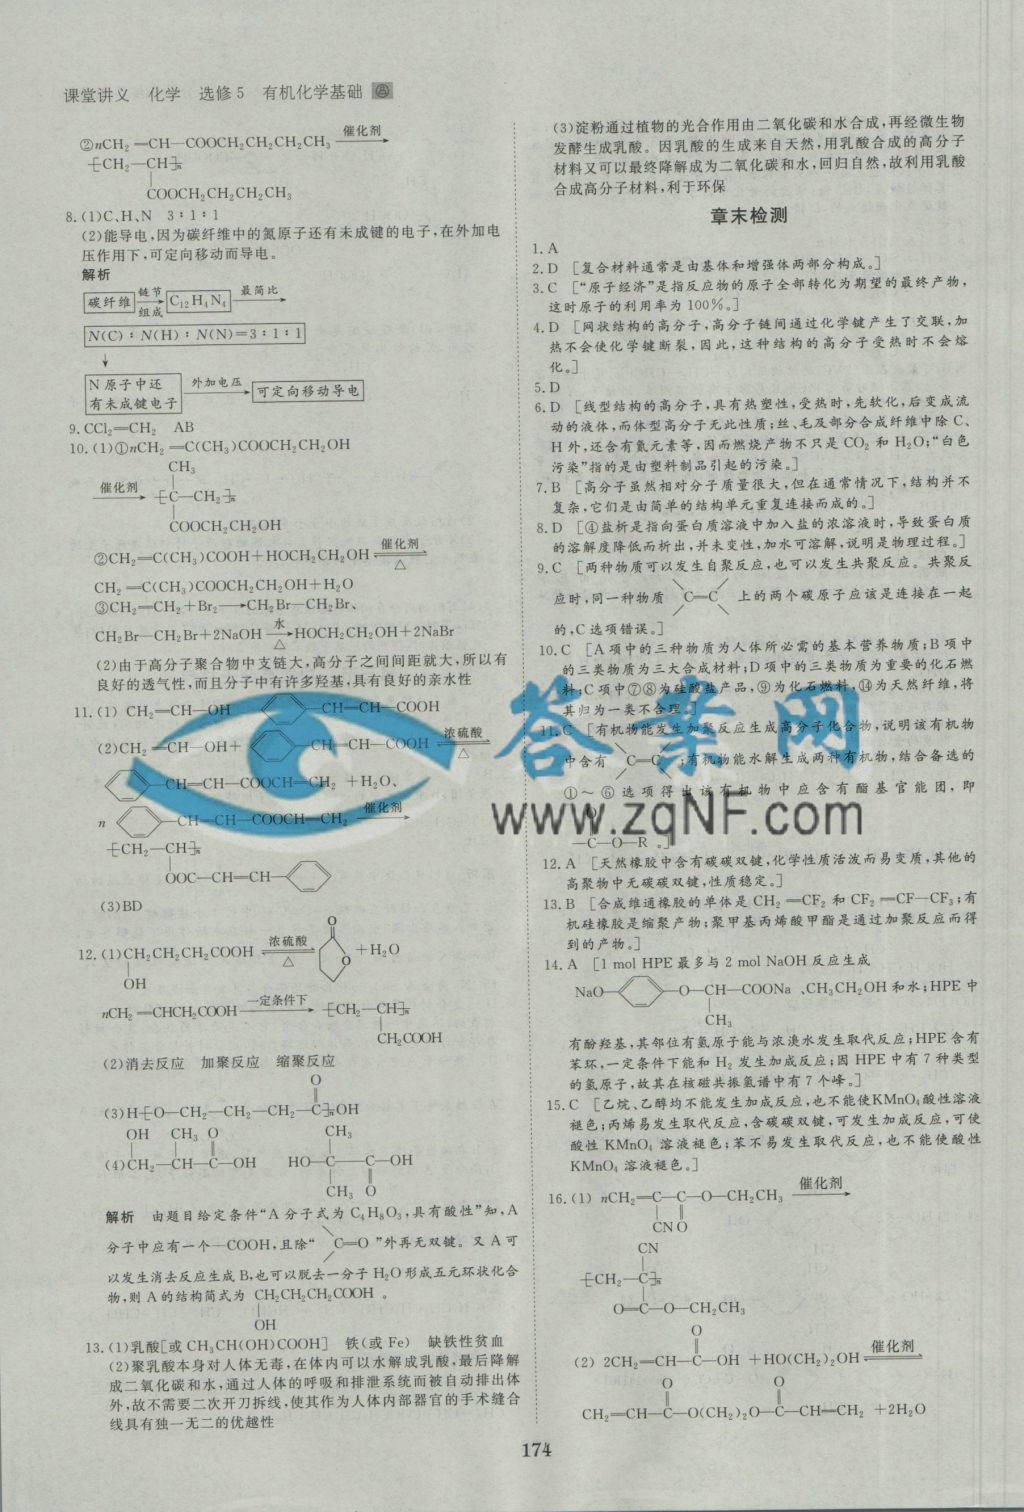 课堂讲义 化学 选修5 有机化学基础
②nCH₂=CH—COOCH₂CH₂CH₂CH₃ 催化剂→
⁅CH₂—CH⁆n
COOCH₂CH₂CH₂CH₃
8.(1)C、H、N 3∶1∶1
(2)能导电,因为碳纤维中的氮原子还有未成键的电子,在外加电
压作用下,可定向移动而导电。
解析
碳纤维 链节组成→ C₁₂H₄N₄ 最简比→
N(C)∶N(H)∶N(N)=3∶1∶1
↓
N原子中还有未成键电子 外加电压→ 可定向移动导电
9.CCl₂=CH₂ AB
10.(1)①nCH₂=C(CH₃)COOCH₂CH₂OH
CH₃
催化剂→ ⁅C—CH₂⁆n
COOCH₂CH₂OH
②CH₂=C(CH₃)COOH+HOCH₂CH₂OH 催化剂⇌△
CH₂=C(CH₃)COOCH₂CH₂OH+H₂O
③CH₂=CH₂+Br₂→CH₂Br—CH₂Br、
CH₂Br—CH₂Br+2NaOH 水→△ HOCH₂CH₂OH+2NaBr
(2)由于高分子聚合物中支链大,高分子之间间距就大,所以有
良好的透气性,而且分子中有许多羟基,具有良好的亲水性
11.(1) CH₂=CH—OH CH=CH—COOH
(2)CH₂=CH—OH+ CH=CH—COOH 浓硫酸⇌△
CH=CH—COOCH=CH₂ +H₂O、
n CH=CH—COOCH=CH₂ 催化剂→
⁅CH₂—CH⁆n
OOC—CH=CH—
(3)BD
12.(1)CH₂CH₂CH₂COOH 浓硫酸⇌△ O O +H₂O
OH
nCH₂=CHCH₂COOH 一定条件下→ ⁅CH₂—CH⁆n
CH₂COOH
(2)消去反应 加聚反应 缩聚反应
O
(3)H⁅O—CH₂—CH₂—CH₂—C⁆nOH
OH CH₃ O CH₃
(4)CH₂—CH—C—OH HO—C—C—OH
CH₃ O
解析 由题目给定条件“A分子式为C₄H₈O₃,具有酸性”知,A
分子中应有一个—COOH,且除“ C=O ”外再无双键。又A可
以发生消去反应生成B,也可以脱去一分子H₂O形成五元环状化合
物,则A的结构简式为 CH₂CH₂CH₂COOH 。
OH
13.(1)乳酸[或CH₃CH(OH)COOH] 铁(或Fe) 缺铁性贫血
(2)聚乳酸本身对人体无毒,在体内可以水解成乳酸,最后降解
成二氧化碳和水,通过人体的呼吸和排泄系统而被自动排出体
外,故不需要二次开刀拆线,使其作为人体内部器官的手术缝合
线具有独一无二的优越性
(3)淀粉通过植物的光合作用由二氧化碳和水合成,再经微生物
发酵生成乳酸。因乳酸的生成来自天然,用乳酸合成的高分子
材料又可以最终降解成为二氧化碳和水,回归自然,故利用乳酸
合成高分子材料,利于环保
章末检测
1.A
2.D [复合材料通常是由基体和增强体两部分构成。]
3.C [“原子经济”是指反应物的原子全部转化为期望的最终产物,
这时原子的利用率为100%。]
4.D [网状结构的高分子,高分子链间通过化学键产生了交联,加
热不会使化学键断裂,因此,这种结构的高分子受热时不会熔
化。]
5.D
6.D [线型结构的高分子,具有热塑性,受热时,先软化,后变成流
动的液体,而体型高分子无此性质;丝、毛及部分合成纤维中除C、
H外,还含有氮元素等,因而燃烧产物不只是CO₂和H₂O;“白色
污染”指的是由塑料制品引起的污染。]
7.B [高分子虽然相对分子质量很大,但在通常情况下,结构并不
复杂,它们是由简单的结构单元重复连接而成的。]
8.D [④盐析是指向蛋白质溶液中加入盐的浓溶液时,导致蛋白质
的溶解度降低而析出,并未变性,加水可溶解,说明是物理过程。]
9.C [两种物质可以发生自聚反应,也可以发生共聚反应。共聚反
应时,同一种物质 C=C 上的两个碳原子应该是连接在一起
的,C选项错误。]
10.C [A项中的三种物质为人体所必需的基本营养物质;B项中
的三类物质为三大合成材料;D项中的三类物质为重要的化石燃
料;C项中⑦⑧为硅酸盐产品,⑨为化石燃料,⑭为天然纤维,将
其归为一类不合理。]
11.C [有机物能发生加聚反应生成高分子化合物,说明该有机物
中含有 C=C ;有机物能水解生成两种有机物,结合备选的
①~⑥选项得出该有机物中应含有酯基官能团,即
O
—C—O—R 。]
12.A [天然橡胶中含有碳碳双键,化学性质活泼而易变质,其他的
高聚物中无碳碳双键,性质稳定。]
13.B [合成维通橡胶的单体是CH₂=CF₂和CF₂=CF—CF₃;有
机硅橡胶是缩聚产物;聚甲基丙烯酸甲酯是通过加聚反应而得
到的产物。]
14.A [1 mol HPE最多与2 mol NaOH反应生成
NaO— —O—CH—COONa、CH₃CH₂OH和水;HPE中
CH₃
有酚羟基,其邻位有氢原子能与浓溴水发生取代反应;HPE含有
苯环,一定条件下能和H₂发生加成反应;因HPE中有7种类型
的氢原子,故其在核磁共振氢谱中有7个峰。]
15.C [乙烷、乙醇均不能发生加成反应,也不能使KMnO₄酸性溶液
褪色;丙烯易发生取代反应,含碳碳双键,可发生加成反应,可使
酸性KMnO₄溶液褪色;苯不易发生取代反应,也不能使酸性
KMnO₄溶液褪色。]
16.(1) nCH₂=C—C—O—CH₂CH₃ 催化剂→
CN O
CN
⁅CH₂—C⁆n
O=C—O—CH₂CH₃
O
(2) 2CH₂=CH—C—OH +HO(CH₂)₂OH 催化剂⇌
O O
CH₂=CH—C—O(CH₂)₂O—C—CH=CH₂ +2H₂O
174
答案网
www.zqNF.com